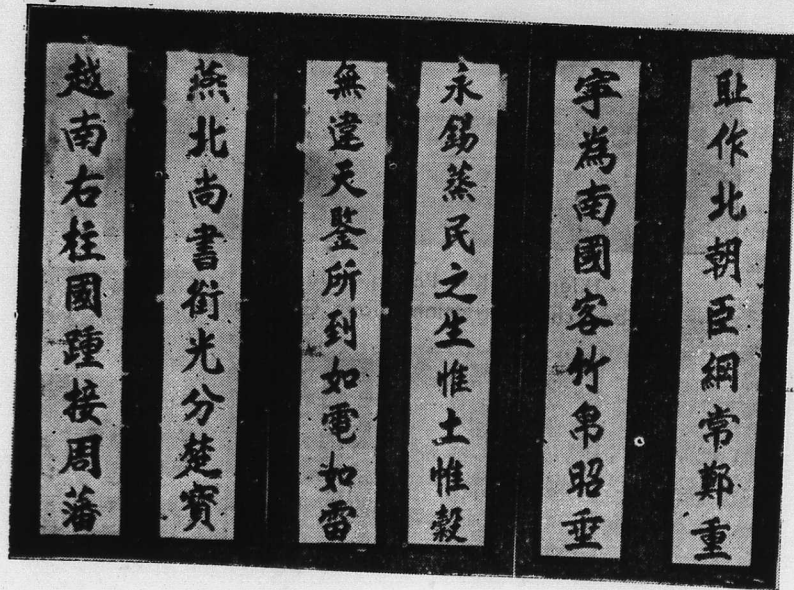 恥作北朝臣綱常鄭重
寧為南國客竹帛昭垂
永錫蒸民之生惟土惟穀
無違天鑒所到如電如雷
燕北尚書銜光分楚寳
越南右柱國踵接周藩